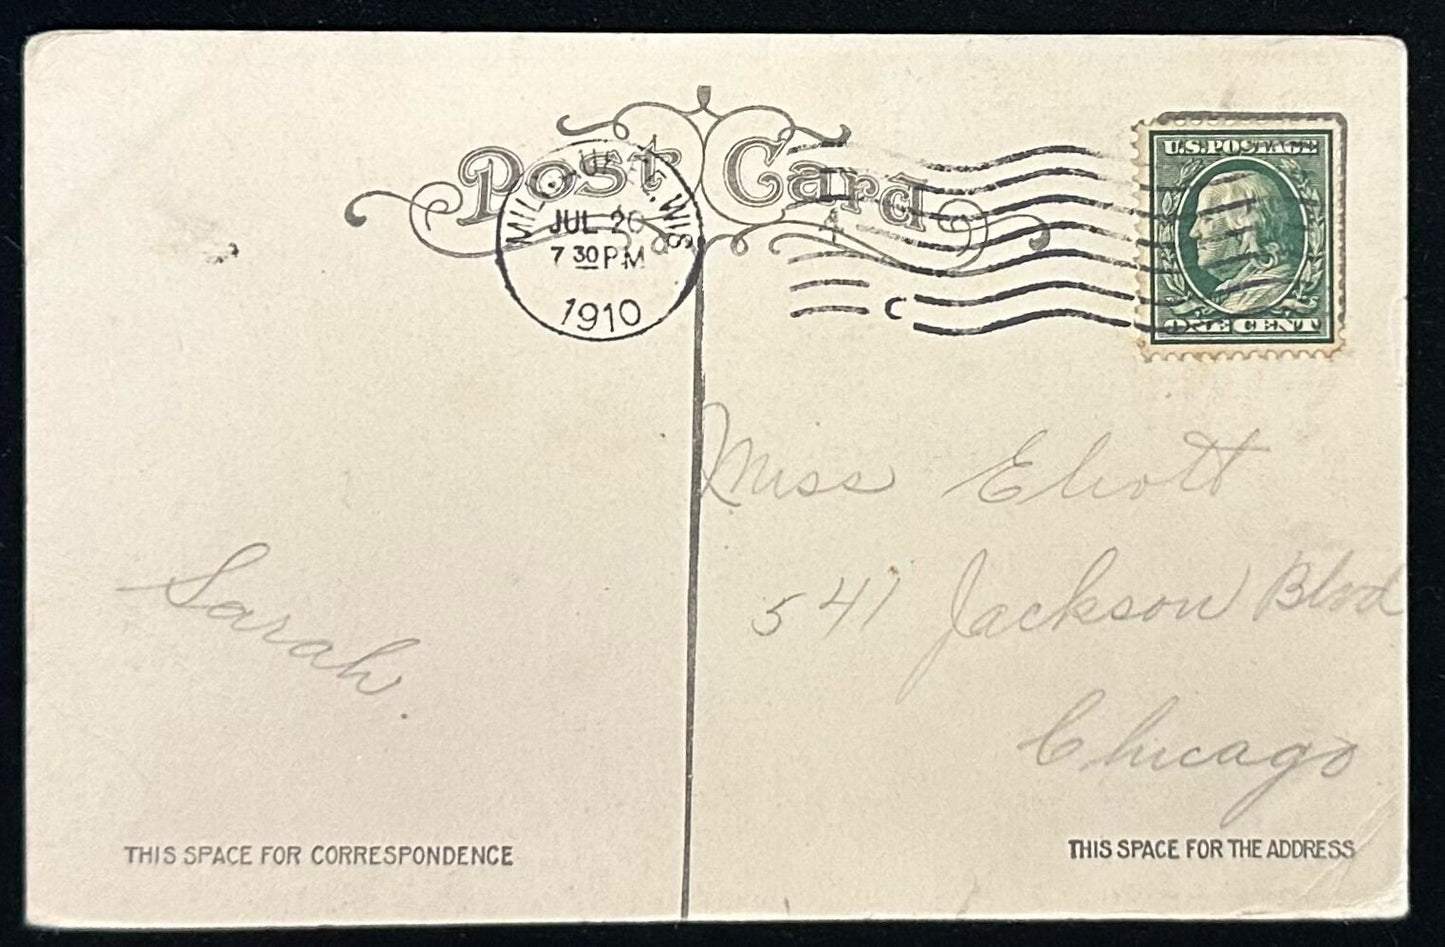 Post Card
MILWAUKEE, WIS
JUL 20
7 30 PM
1910
C
U.S. POSTAGE
ONE CENT
Miss Eliott
541 Jackson Blvd
Chicago
Sarah.
THIS SPACE FOR CORRESPONDENCE
THIS SPACE FOR THE ADDRESS